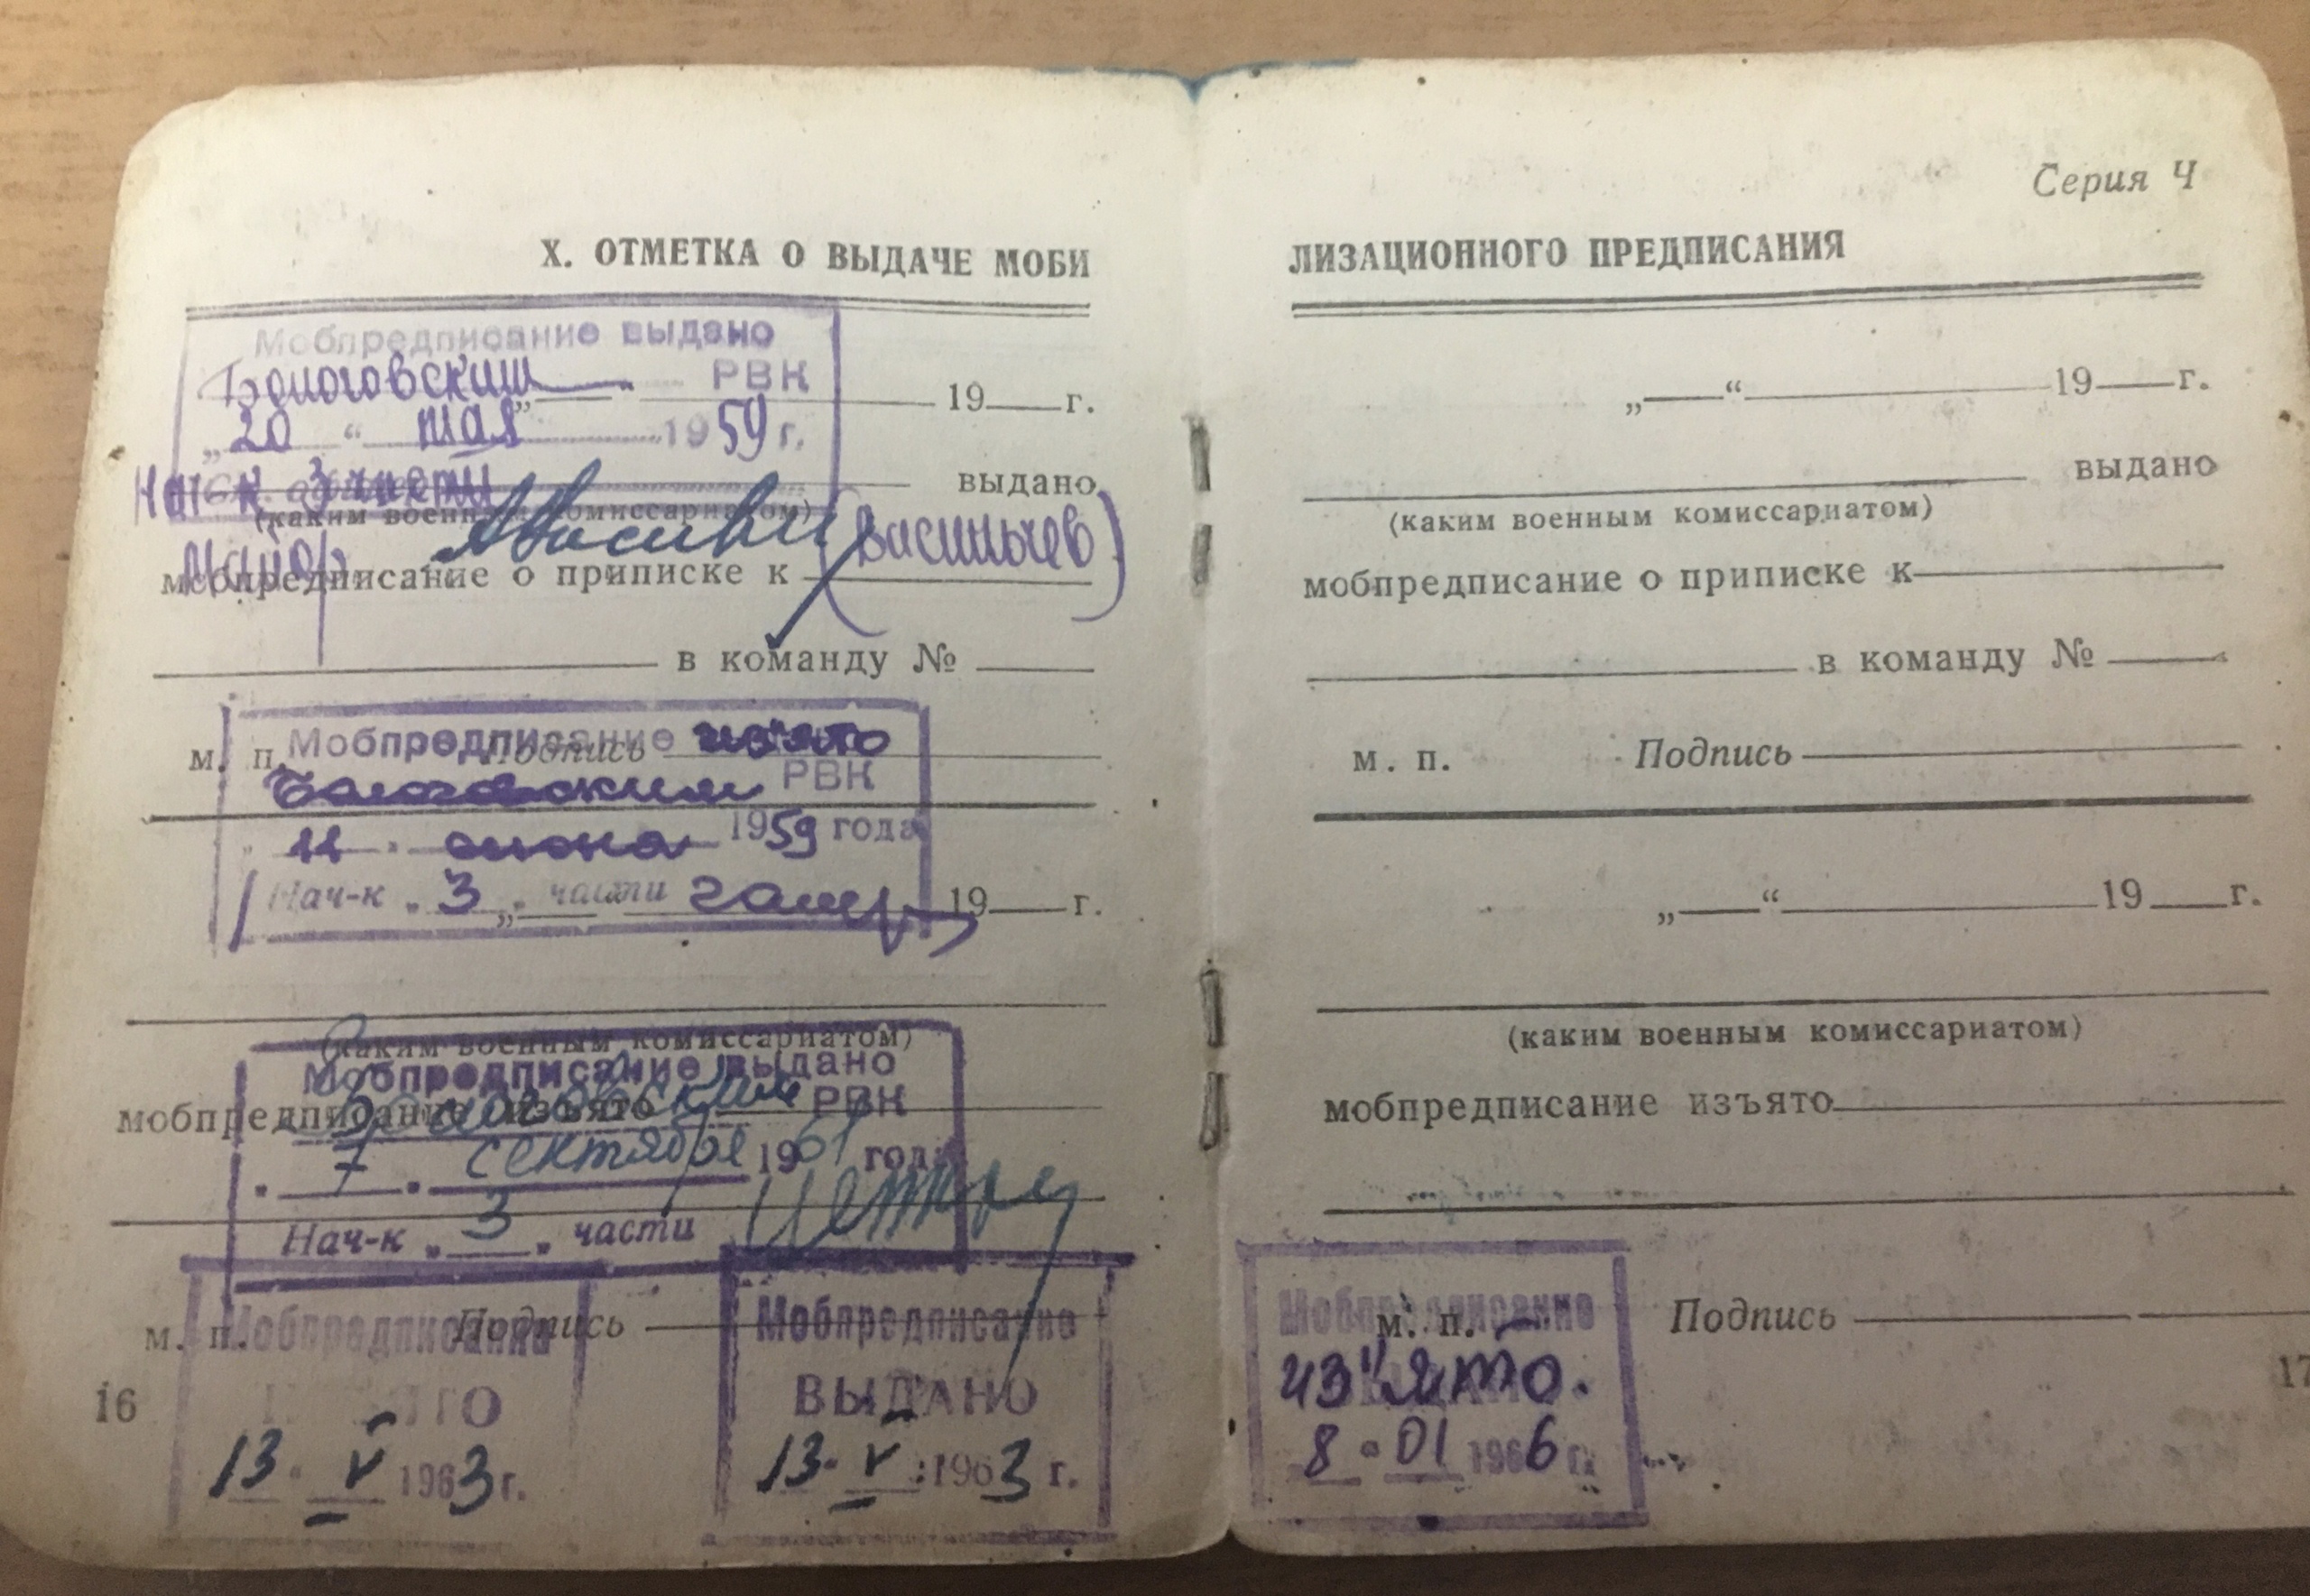 Серия Ч
X. ОТМЕТКА О ВЫДАЧЕ МОБИ
ЛИЗАЦИОННОГО ПРЕДПИСАНИЯ
Мобпредписание выдано
Бологовским РВК
„20“ мая 1959 г.
19 г.
Нач-к 3 части
выдано
(каким военным комиссариатом)
майор (Васильчев)
мобпредписание о приписке к
в команду №
м. п. Подпись
Мобпредписание изъято
Бологовским РВК
11 июня 1959 года
Нач-к „3“ части
„ 19 г.
(каким военным комиссариатом)
Мобпредписание выдано
Бологовским РВК
мобпредписание изъято
7 сентября 1961 года
Нач-к „3“ части
м. п. Подпись
Мобпредписание
13. V 1963 г.
Мобпредписание
ВЫДАНО
13. V 1963 г.
16
„ “ 19 г.
выдано
(каким военным комиссариатом)
мобпредписание о приписке к
в команду №
м. п. Подпись
„ “ 19 г.
(каким военным комиссариатом)
мобпредписание изъято
м. п. Подпись
Мобпредписание
из"ято.
8 01 1966 г.
17